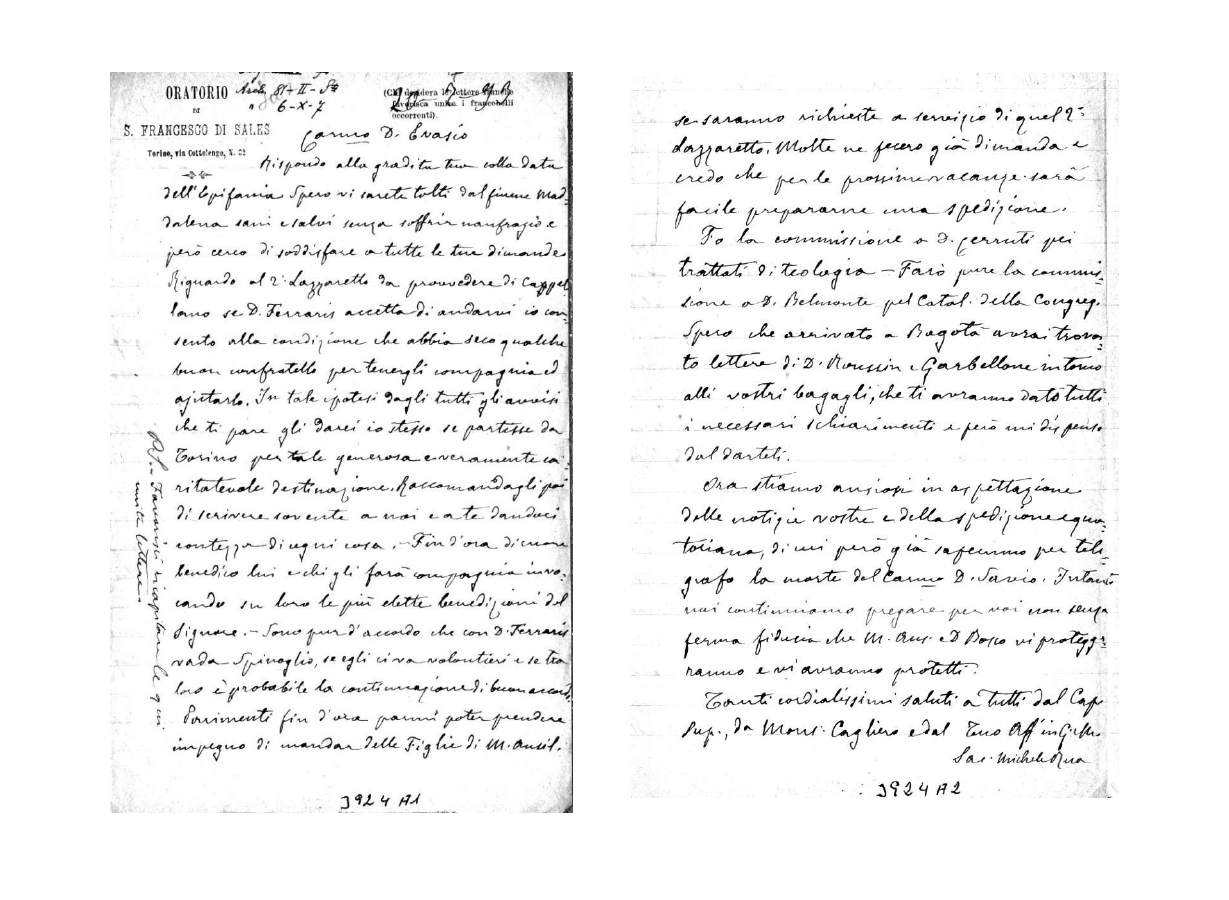 ORATORIO
DI
S. FRANCESCO DI SALES
Torino, via Cottolengo, N. 32
Arch. 81-II-
" 6-X-7
(Chi desidera le lettere franche
favorisca unire i francobolli
occorrenti).
Carmo D. Evasio
Rispondo alla gradita tua colla data
dell'Epifania Spero vi sarete tolti dal fiume Mad-
dalena sani e salvi senza soffrir naufragio e
però cerco di soddisfare a tutte le tue dimande
Riguardo al 2° Lazzaretto da provvedere di Cappel-
lano se D. Ferraris accetta di andarvi io con-
sento alla condizione che abbia seco qualche
buon confratello per tenergli compagnia ed
ajutarlo. In tale ipotesi dagli tutti gli avvisi
che ti pare gli darei io stesso se partisse da
Torino per tale generosa e veramente ca-
ritatevole destinazione. Raccomandagli poi
di scrivere sovente a noi e a te dandoci
contezza di ogni cosa. - Fin d'ora di cuore
benedico lui e chi gli farà compagnia invo-
cando su loro le più elette benedizioni del
Signore. - Sono pur d'accordo che con D. Ferraris
vada Spinoglio, se egli ci va volontieri e se tra
loro è probabile la continuazione di buon accord.
Parimenti fin d'ora parmi poter prendere
impegno di mandar delle Figlie di M. Ausil.
PS. - Favorisci ricapitare le qui
unite lettere.
3924 A1
se saranno richieste a servizio di quel 2°
Lazzaretto. Molte ne fecero già dimanda e
credo che per le prossime vacanze sarà
facile prepararne una spedizione.
Fo la commissione a D. Cerruti pei
trattati di teologia - Farò pure la commis-
sione a D. Belmonte pel Catal. della Congreg.
Spero che arrivato a Bogotà avrai trova-
to lettere di D. Roussin e Garbellone intorno
alli vostri bagagli, che ti avranno dato tutti
i necessari schiarimenti e però mi dispenso
dal darteli.
Ora stiamo ansiosi in aspettazione
delle notizie vostre e della spedizione equa-
toriana, di cui però già sapemmo per tele-
grafo la morte del Carmo D. Savio. Intanto
noi continuiamo pregare per voi non senza
ferma fiducia che M. Aus. e D Bosco vi protegge-
ranno e vi avranno protetti.
Tanti cordialissimi saluti a tutti dal Cap.
Sup., da Mons. Cagliero e dal Tuo Aff in G. e M.
Sac. Michele Rua
3924 A2